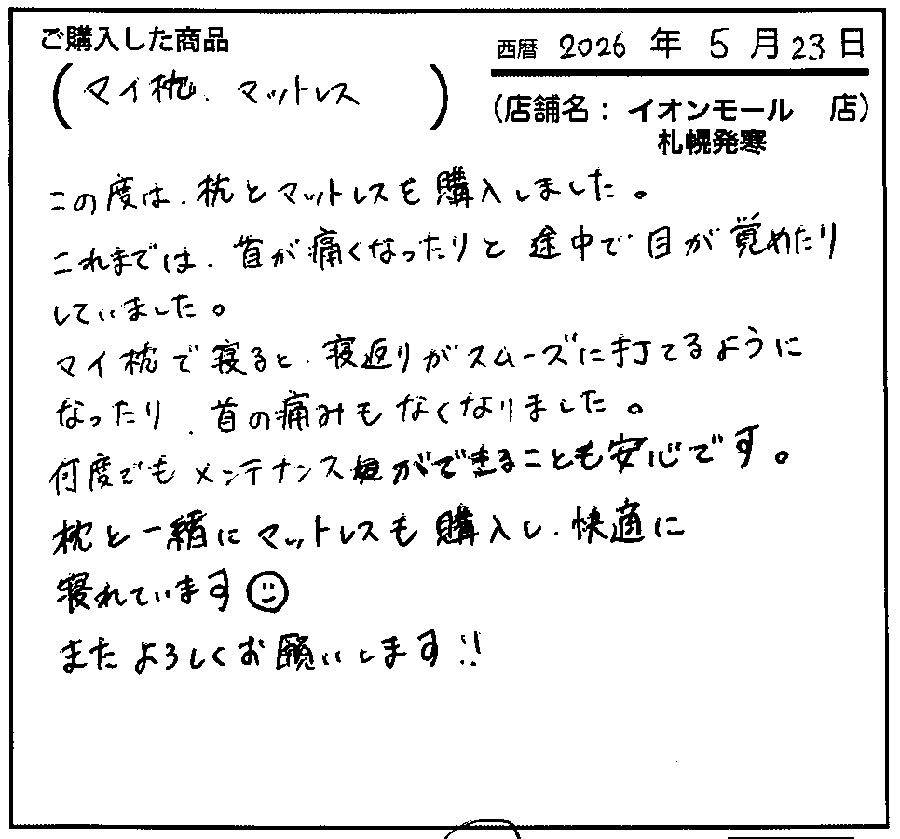 ご購入した商品
(マイ枕、マットレス)
西暦 2026 年 5 月 23 日
(店舗名:イオンモール 店)
札幌発寒
この度は、枕とマットレスを購入しました。
これまでは、首が痛くなったりと途中で目が覚めたり
していました。
マイ枕で寝ると、寝返りがスムーズに打てるように
なったり、首の痛みもなくなりました。
何度でもメンテナンスができることも安心です。
枕と一緒にマットレスも購入し、快適に
寝れています
またよろしくお願いします!!